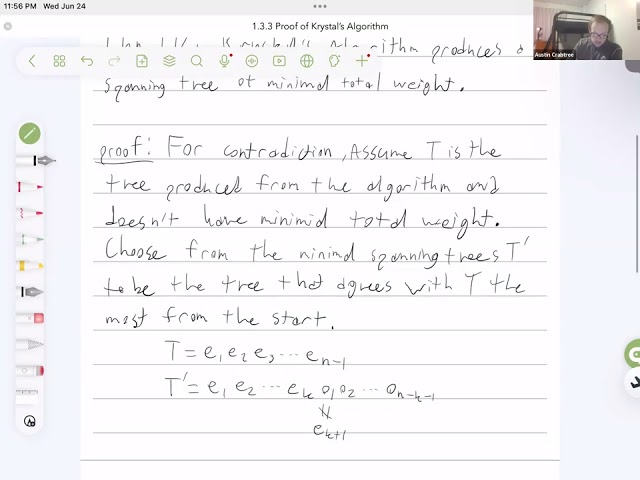 11:56 PM Wed Jun 24
1.3.3 Proof of Krystal's Algorithm
Algorithm produces a
spanning tree of minimal total weight.
Austin Crabtree
proof: For contradiction, Assume T is the
tree produced from the algorithm and
doesn't have minimal total weight.
Choose from the minimal spanning trees T'
to be the tree that agrees with T the
most from the start.
T = e₁ e₂ e₃ ... eₙ₋₁
T' = e₁ e₂ ... eₖ o₁ o₂ ... oₙ₋ₖ₋₁
eₖ₊₁